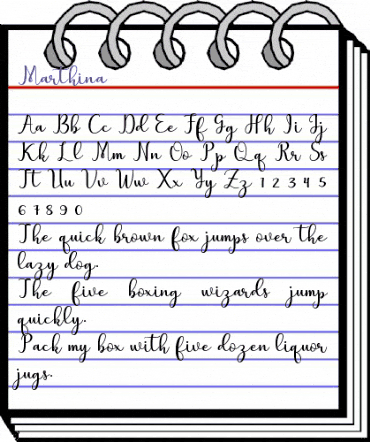 Marthina
Aa Bb Cc Dd Ee Ff Gg Hh Ii Jj
Kk Ll Mm Nn Oo Pp Qq Rr Ss
Tt Uu Vv Ww Xx Yy Zz 1 2 3 4 5
6 7 8 9 0
The quick brown fox jumps over the
lazy dog.
The five boxing wizards jump
quickly.
Pack my box with five dozen liquor
jugs.